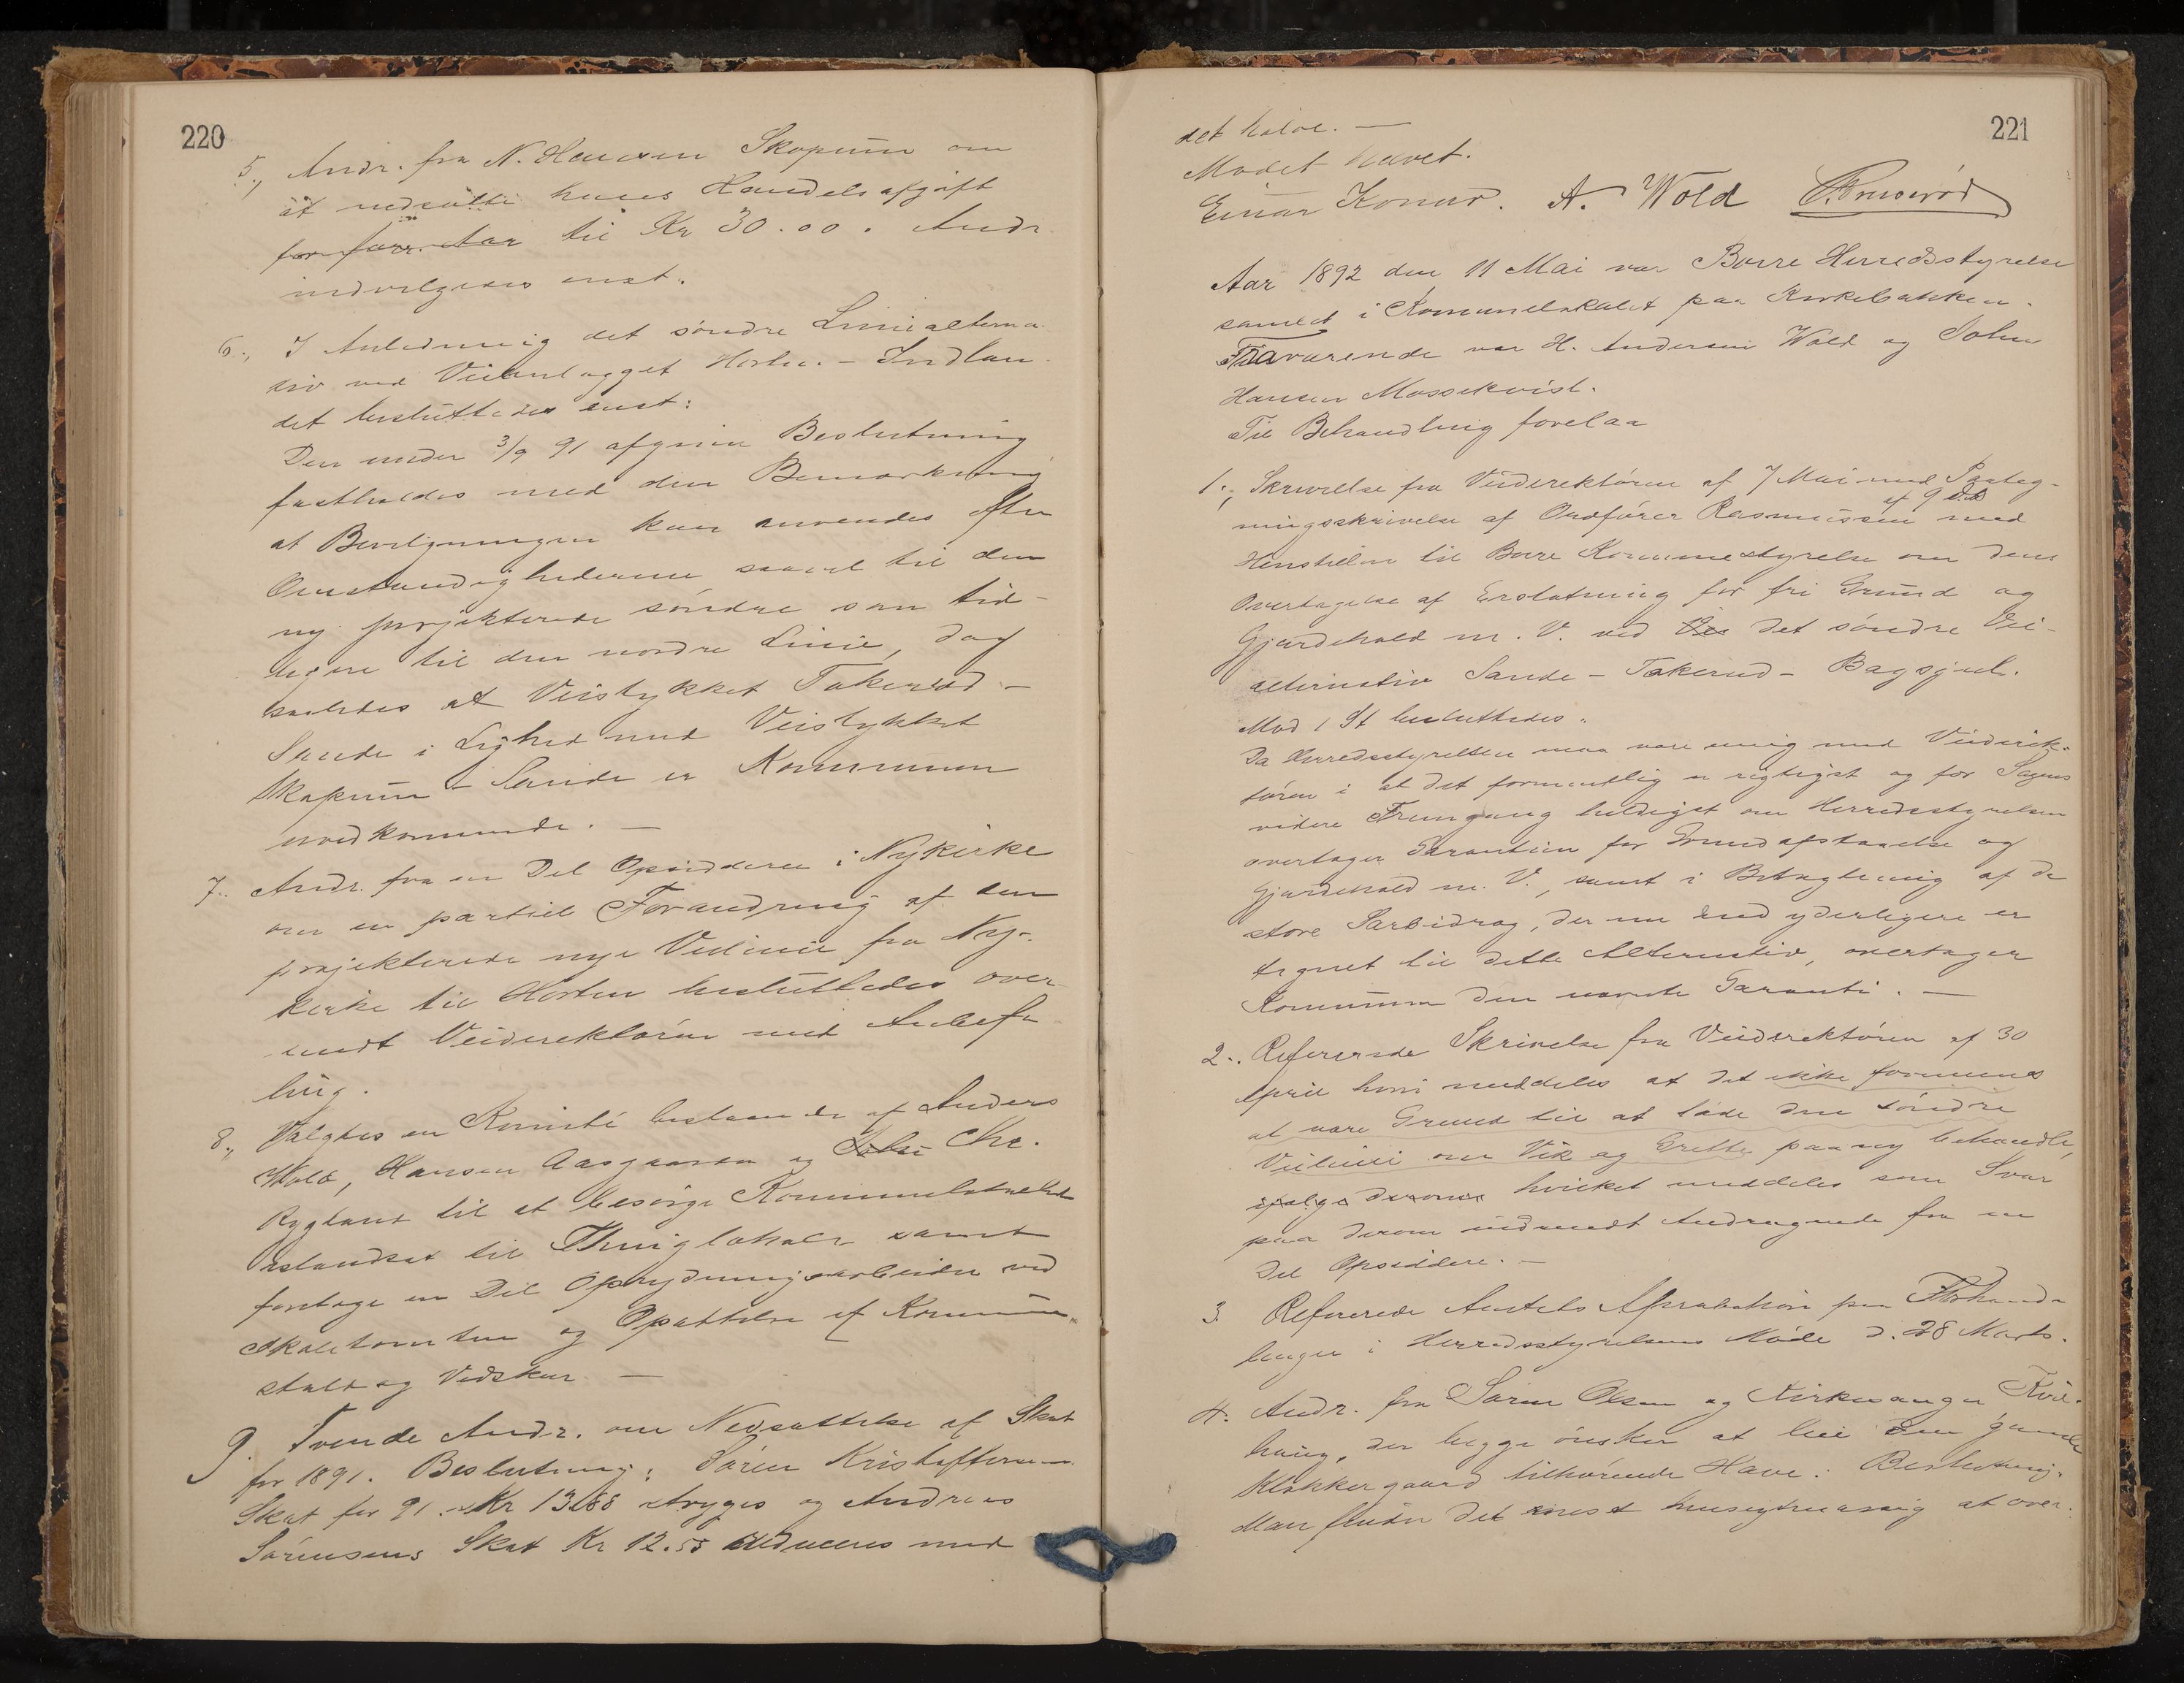 220
5., Andr. fra N. Hansen Skopum om
at nedsætte hans Handelsafgift
for forr. Aar til Kr 30.00. Andr
indvilgedes enst.
6., I Anledning det søndre Liniealterna-
tiv ved Veianlægget Horten - Indlan
det besluttedes enst:
Den under 3/9 91 afgivne Beslutning
fastholdes med den Bemærkning
at Bevilgningen kan anvendes efter
Omstændighederne saavel til den
ny projekterede søndre som tid-
ligere til den nordre Linie, dog
saaledes at Veistykket Takerød -
Sande i Lighed med Veistykket
Skopum - Sande er Kommunen
uvedkommende. -
7.. Andr. fra en Del Opsiddere i Nykirke
om en partiel Forandring af den
projekterede nye Veilinie fra Ny-
kirke til Horten besluttedes over
sendt Veidirektøren med Anbefa
ling.
8., Valgtes en Komité bestaaende af Anders
Wold, Hansen Aasgaarden og Johs Chr.
Rygtant til at besørge Kommunelokalet
istandsat til Thinglokale samt
foretage en Del Oprydningsarbeider ved
Skoletomten og Opsættelse af Kommune
stald og Vedskur -
9. Tvende Andr. om Nedsættelse af Skat
for 1891. Beslutning: Søren Kristoffersens
Skat for 91. Kr 13.68 stryges og Andreas
Sørensens Skat Kr 12.55 reduceres med
221
det halve. -
Mødet hævet.
Einar Konow. A. Wold C. Bruserød
Aar 1892 den 11 Mai var Borre Herredsstyrelse
samlet i Kommunelokalet paa Kirkebakken.
Fraværende var H. Andersen Wold og Johan
Hansen Massekvist.
Til Behandling forelaa
1., Skrivelse fra Veidirektøren af 7 Mai med Paateg-
af 9 ds
ningsskrivelse af Ordfører Rasmussen med
Henstillen til Borre Kommunestyrelse om dens
Overtagelse af Erstatning for fri Grund og
Gjærdehold m. V. ved det søndre Vei-
alternativ Sande - Takerud - Bagsjul.
Mod 1 St besluttedes:
Da Herredsstyrelsen maa være enig med Veidirek-
tøren i at det formentlig er rigtigst og for Sagens
videre Fremgang heldigst om Herredsstyrelsen
overtager Garantien for Grundafstaaelse og
Gjærdehold m. V., samt i Betragtning af de
store Særbidrag, der nu end yderligere er
tegnet til dette Alternativ, overtager
Kommunen den nævnte Garanti. -
2.. Refererede Skrivelse fra Veidirektøren af 30
April hvori meddeles at det ikke formenes
at være Grund til at lade den søndre
Veilinie over Vik og Grette paany behandle,
hvilket meddeles som Svar
paa derom indsendt Andragende fra en
Del Opsiddere. -
3. Refererede Amtets Approbation paa Forhand-
linger i Herredsstyrelsens Møde d. 28 Marts.
4. Andr. fra Søren Olsen og Kirkesanger Kvil-
haug, der begge ønsker at leie den gamle
Klokkergaard tilhørende Have. Beslutning.
Man finder det mest hensigtsmæssig at over-